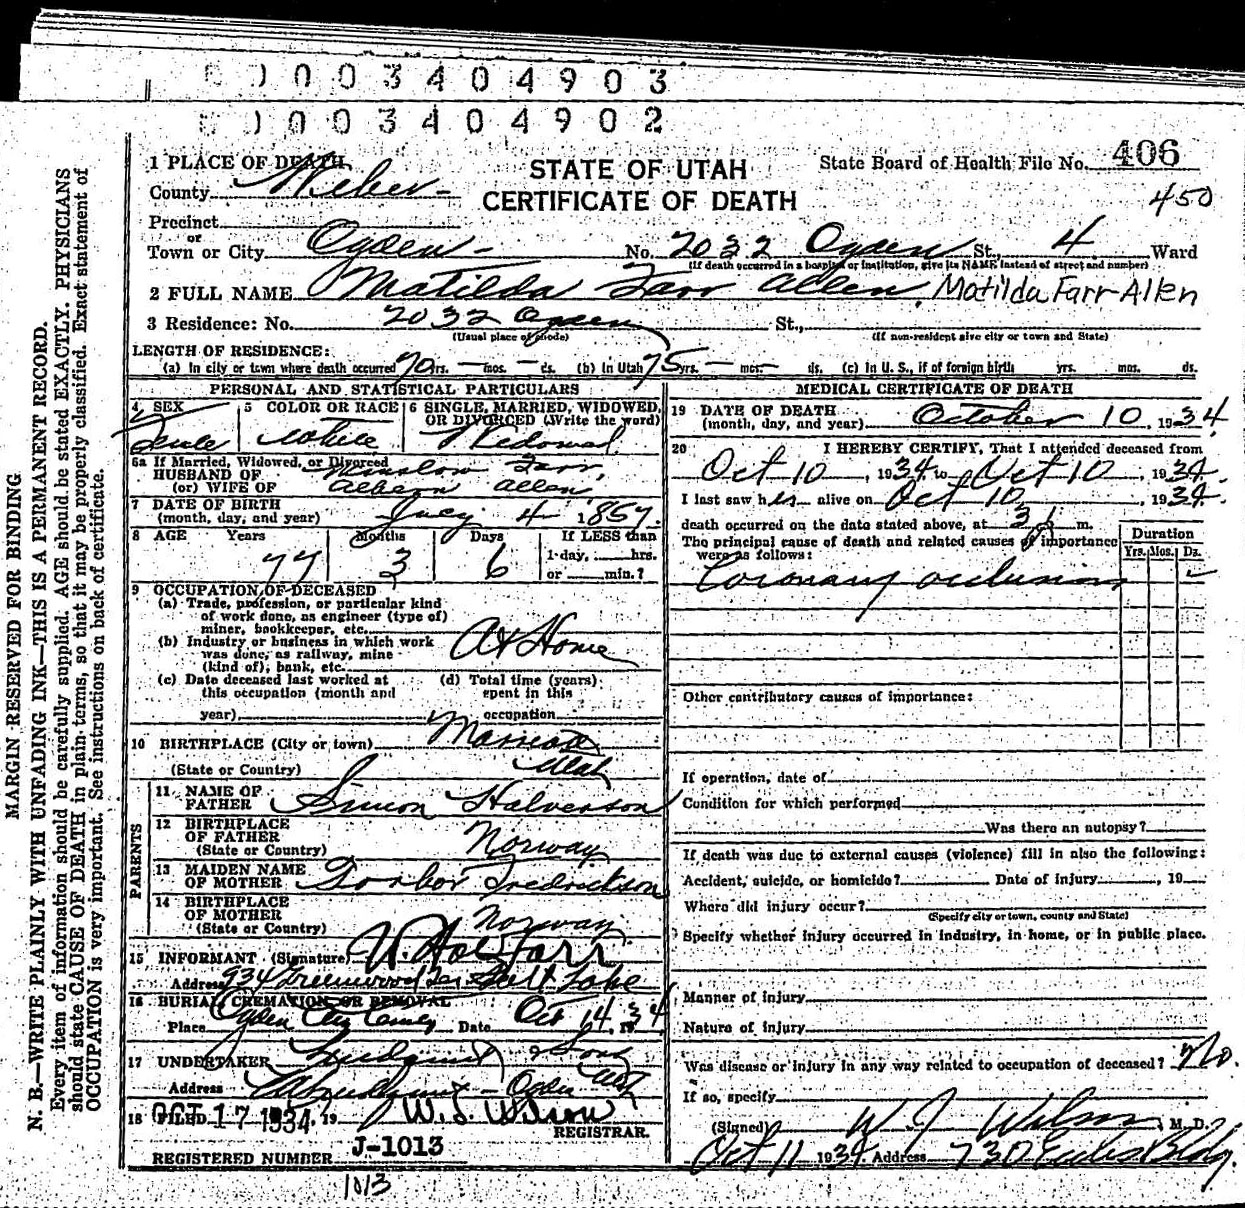 0003404903
0003404902
1 PLACE OF DEATH
STATE OF UTAH
CERTIFICATE OF DEATH
State Board of Health File No. 406
450
County Weber
Precinct
or
Town or City Ogden No. 2032 Ogden St., 4 Ward
(If death occurred in a hospital or institution, give its NAME instead of street and number)
2 FULL NAME Matilda Farr Allen. Matilda Farr Allen
3 Residence: No. 2032 Ogden St.,
(Usual place of abode) (If non-resident give city or town and State)
LENGTH OF RESIDENCE:
(a) In city or town where death occurred 70 yrs. — mos. — ds. (b) In Utah 75 yrs. — mos. — ds. (c) In U. S., if of foreign birth yrs. mos. ds.
PERSONAL AND STATISTICAL PARTICULARS
4 SEX
5 COLOR OR RACE White
6 SINGLE, MARRIED, WIDOWED, OR DIVORCED (Write the word) Widowed
6a If Married, Widowed, or Divorced
HUSBAND OF Winslow Farr,
(or) WIFE OF Albern Allen
7 DATE OF BIRTH
(month, day, and year) July 4 1857.
8 AGE Years 77 Months 3 Days 6 If LESS than
1 day, hrs.
or min.?
9 OCCUPATION OF DECEASED
(a) Trade, profession, or particular kind
of work done, as engineer (type of)
miner, bookkeeper, etc.
(b) Industry or business in which work
was done, as railway, mine
(kind of), bank, etc. At Home
(c) Date deceased last worked at
this occupation (month and
year)
(d) Total time (years)
spent in this
occupation
10 BIRTHPLACE (City or town)
(State or Country) Utah
PARENTS
11 NAME OF
FATHER Simon Halverson
12 BIRTHPLACE
OF FATHER
(State or Country) Norway
13 MAIDEN NAME
OF MOTHER Gorbor Fredrickson
14 BIRTHPLACE
OF MOTHER
(State or Country) Norway
15 INFORMANT (Signature) Farr
Address 934 Greenwood Ter Salt Lake
16 BURIAL, CREMATION OR REMOVAL
Place Ogden City Date Oct 14, 1934
17 UNDERTAKER Lindquist & Sons
Address Ogden Utah
18 FILED OCT 17 1934, 19 W. J. Wilson
REGISTRAR.
REGISTERED NUMBER J-1013
1013
MEDICAL CERTIFICATE OF DEATH
19 DATE OF DEATH
(month, day, and year) October 10, 1934.
20 I HEREBY CERTIFY, That I attended deceased from
Oct 10, 1934 to Oct 10, 1934.
I last saw her alive on Oct 10, 1934.
death occurred on the date stated above, at 3 p m.
The principal cause of death and related causes of importance
were as follows:
Duration
Yrs. Mos. Ds.
Coronary occlusion
Other contributory causes of importance:
If operation, date of
Condition for which performed
Was there an autopsy?
If death was due to external causes (violence) fill in also the following:
Accident, suicide, or homicide? Date of injury , 19
Where did injury occur?
(Specify city or town, county and State)
Specify whether injury occurred in industry, in home, or in public place.
Manner of injury
Nature of injury
Was disease or injury in any way related to occupation of deceased? No.
If so, specify
(Signed) W J Wilson, M. D.
Oct 11 1934 Address 730 Eccles Bldg.
MARGIN RESERVED FOR BINDING
N. B.—WRITE PLAINLY WITH UNFADING INK—THIS IS A PERMANENT RECORD.
Every item of information should be carefully supplied. AGE should be stated EXACTLY. PHYSICIANS
should state CAUSE OF DEATH in plain terms, so that it may be properly classified. Exact statement of
OCCUPATION is very important. See instructions on back of certificate.